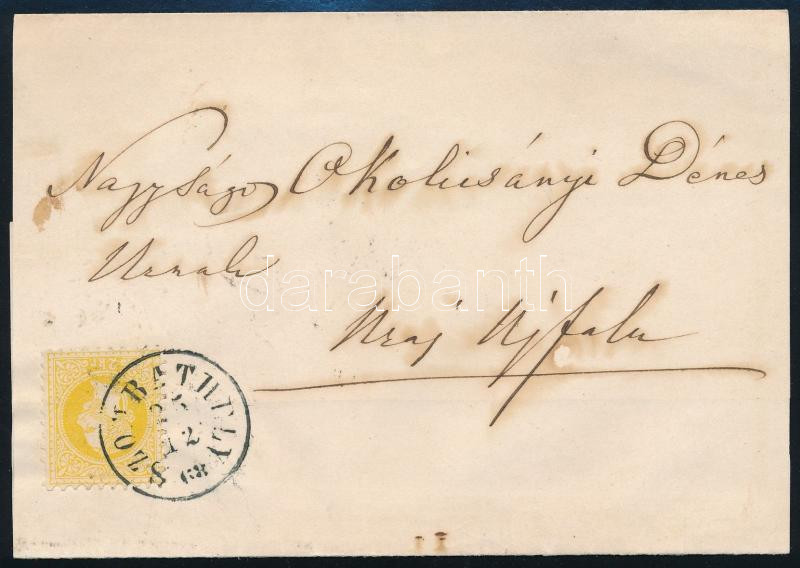 Nagyságos Okolicsányi Dénes
Urnak
Uraj Ujfalu
darabanth
SZOMBATHELY
12
68